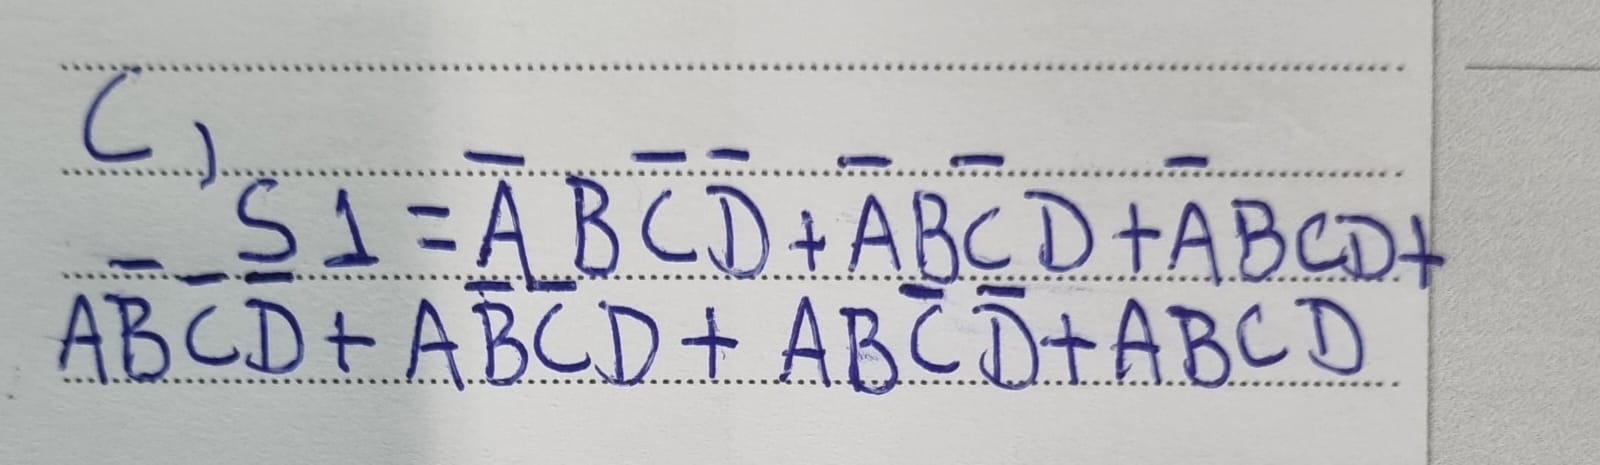 C)
S1 = A̅ B C̅ D̅ + A̅ B C̅ D + A̅ B C D +
A B̅ C̅ D̅ + A B̅ C̅ D + A B C̅ D̅ + A B C D